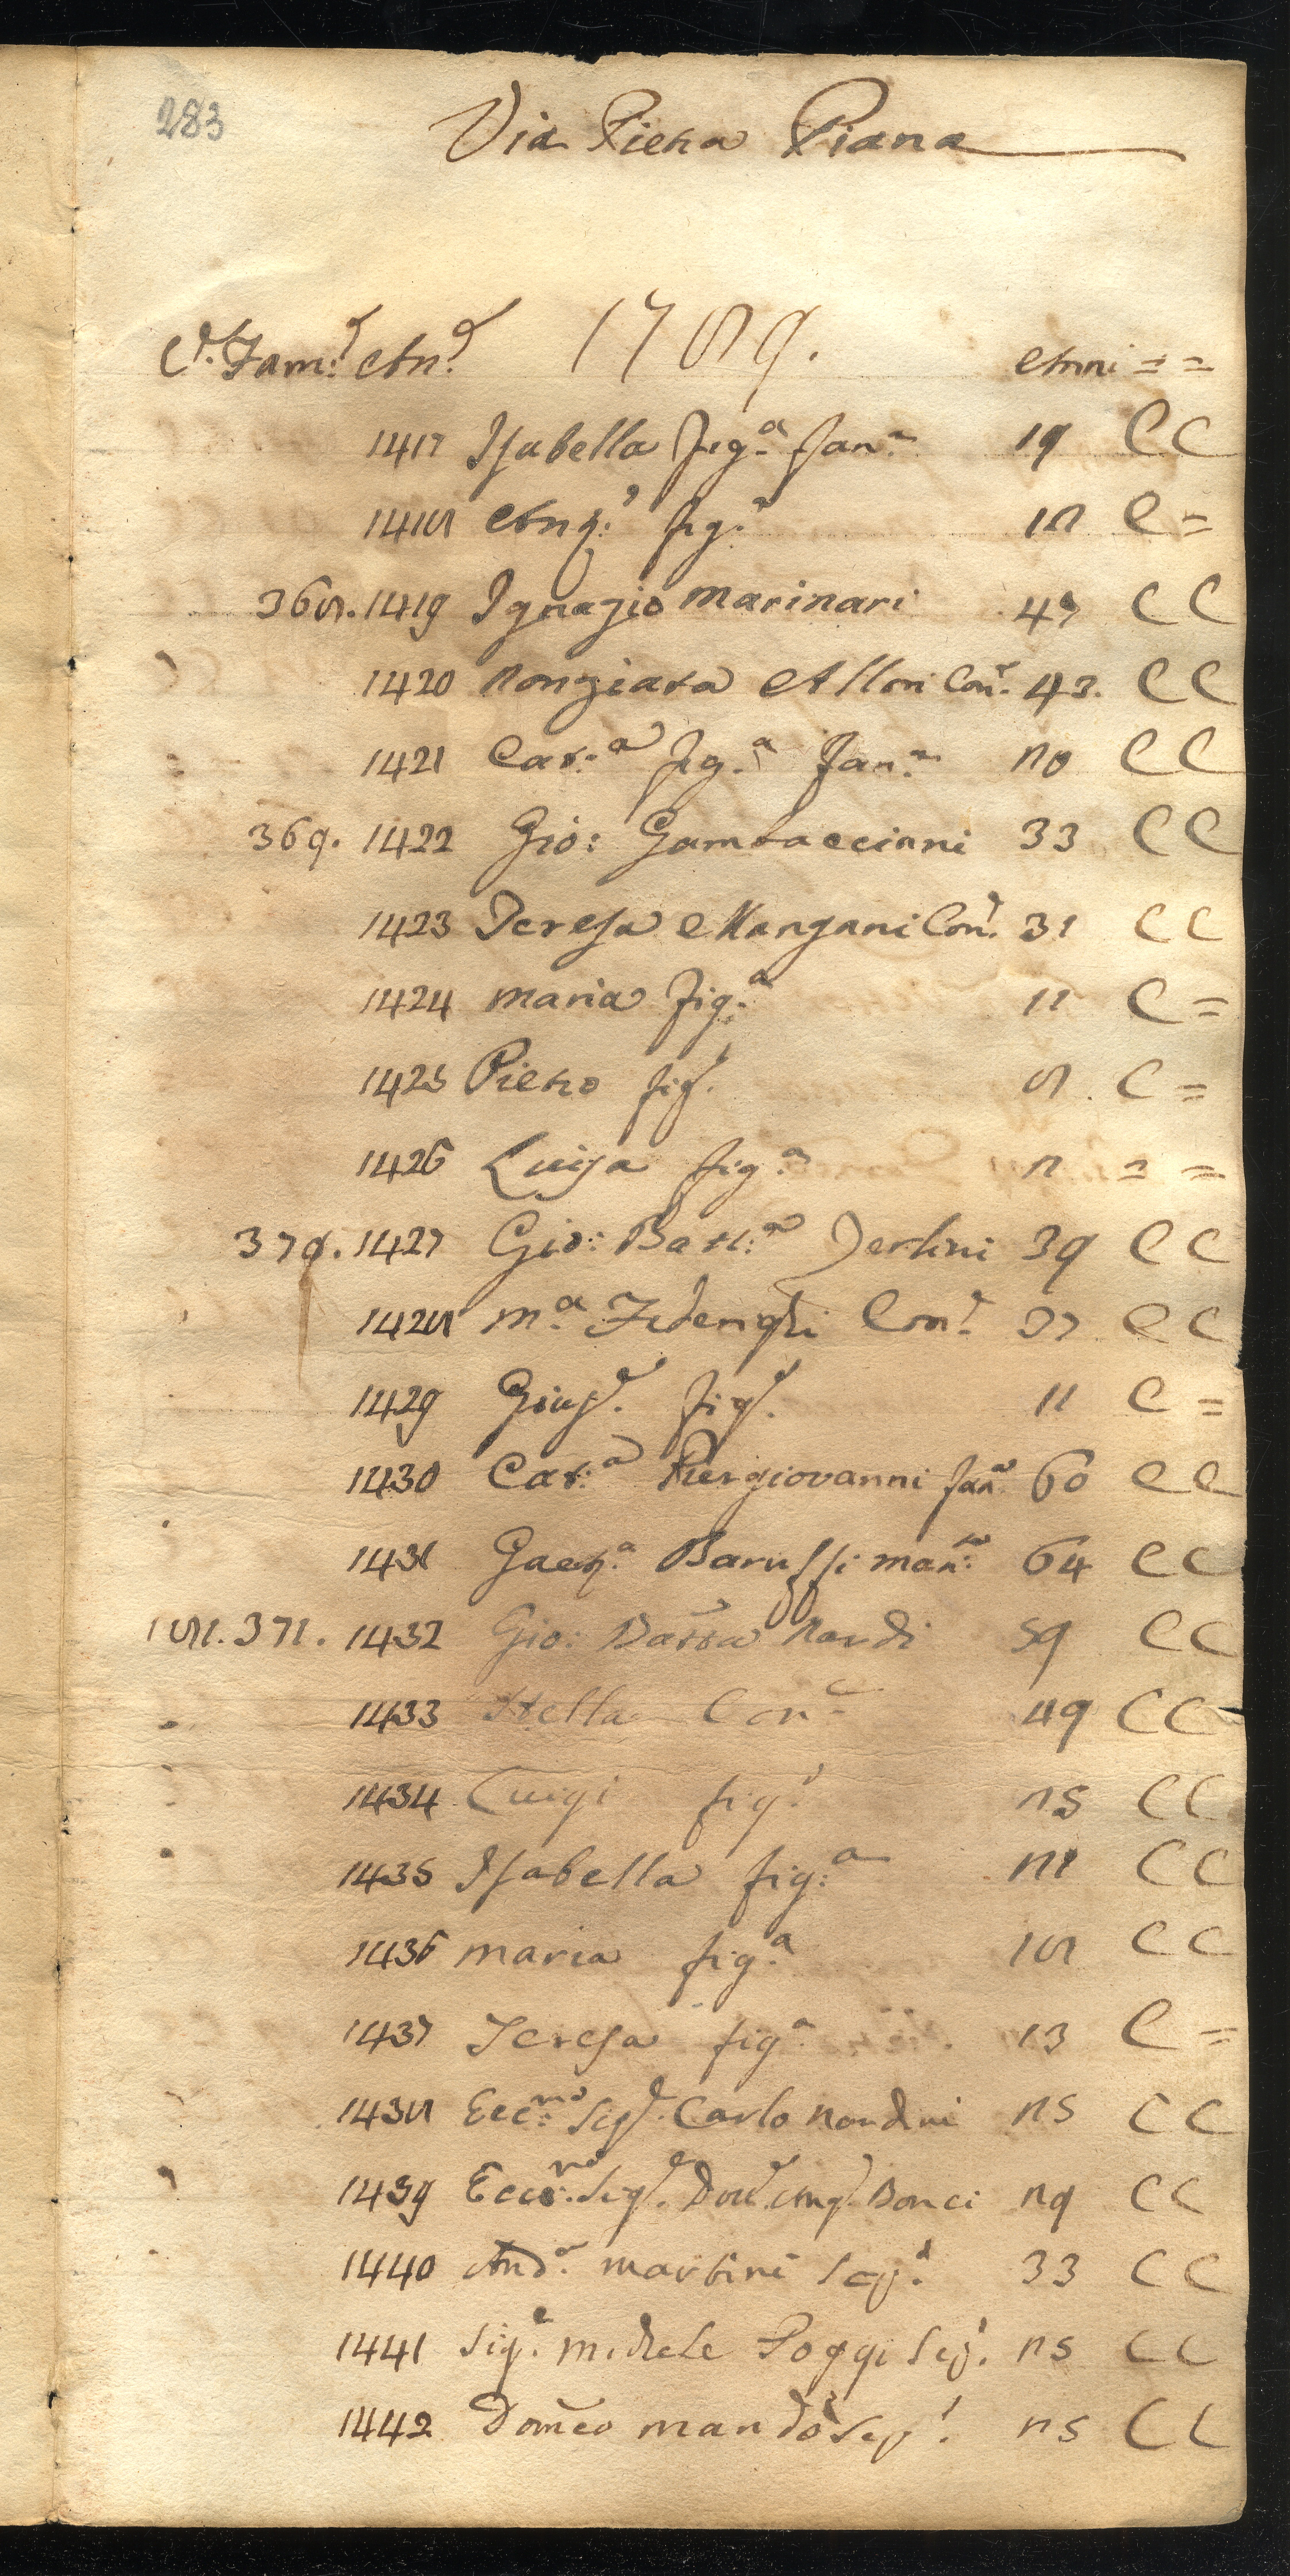 283
Via Pietra Piana
C.e Fam.e An.e 1789. Anni = =
1417 Isabella fig.a fan.a 19 C C
1418 Ang.o fig.o 12 C =
368. 1419 Ignazio Marinari 47 C C
1420 Nonziata Allori Con.e 43. C C
1421 Cat.a fig.a fan.a 20 C C
369. 1422 Gio: Gambaccianni 33 C C
1423 Teresa Mangani Con.e 31 C C
1424 Maria fig.a 11 C =
1425 Pietro fig.o 8. C =
1426 Luisa fig.a 2 = =
370. 1427 Gio: Batt.a 39 C C
1428 M.a Federighi Con.e 37 C C
1429 Gius.e fig.o 11 C =
1430 Cat.a Piergiovanni fan.a 60 C C
1431 Gaet.a Baruffi 64 C C
181. 371. 1432 Gio: Batta Nardi 59 C C
1433 Stella Con.e 49 C C
1434 Luigi fig.o 25 C C
1435 Isabella fig.a 21 C C
1436 Maria fig.a 18 C C
1437 Teresa fig.a 13 C =
1438 Ecc.mo Sig.e Carlo Nardini 25 C C
1439 Ecc.mo Sig.e Dott.e Ang.o Bonci 29 C C
1440 And.a Martini 33 C C
1441 Sig.e Michele Poggi 25 C C
1442 Domeo 25 C C